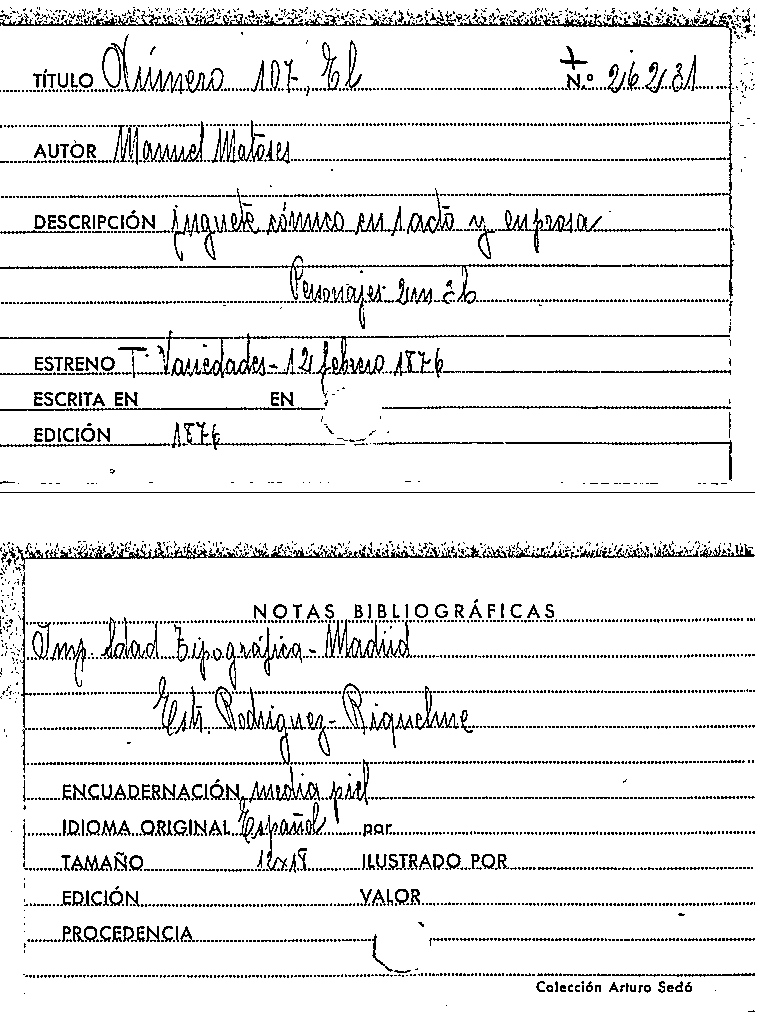 TÍTULO Número 107, El N.º 26231
AUTOR Manuel Matoses
DESCRIPCIÓN juguete cómico en 1 acto y en prosa
Personajes 2m 3h
ESTRENO T. Variedades - 12 febrero 1876
ESCRITA EN EN
EDICIÓN 1876
NOTAS BIBLIOGRÁFICAS
Imp. Sdad Tipográfica - Madrid
Estr. Rodriguez - Riquelme
ENCUADERNACIÓN media piel
IDIOMA ORIGINAL Español por
TAMAÑO 12x18 ILUSTRADO POR
EDICIÓN VALOR
PROCEDENCIA
Colección Arturo Sedó